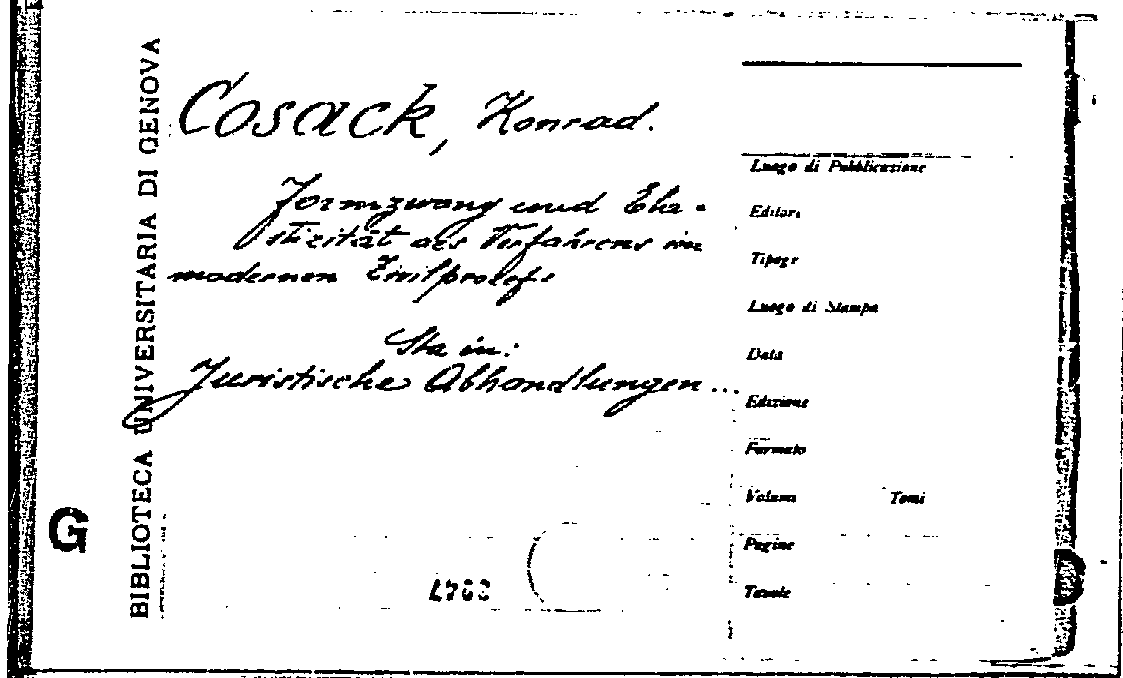 BIBLIOTECA UNIVERSITARIA DI GENOVA
Cosack, Konrad.
Formzwang und Ela-
stizität des Verfahrens im
modernen Zivilprozeß
Sta in:
Juristische Abhandlungen...
G
Luogo di Pubblicazione
Editori
Tipogr
Luogo di Stampa
Data
Edizione
Formato
Volumi Tomi
Pagine
Tavole